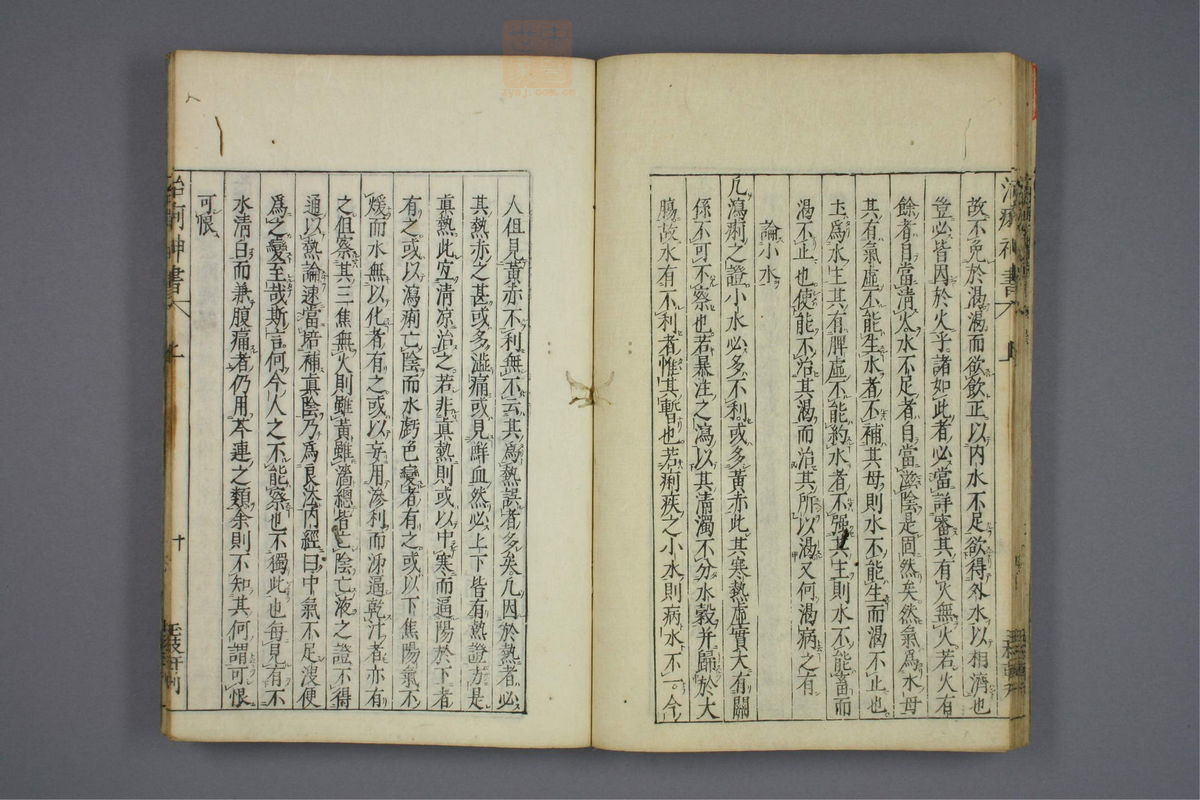 故不免於渴渴而欲飲正以内水不足欲得外水以相濟也
豈必皆因於火乎諸如此者必當詳審其有火無火若火有
餘者自當清火水不足者自當滋陰是固然矣然氣爲水母
其有氣虚不能生水者不補其母則水不能生而渴不止也
土爲水主其有脾虚不能約水者不强其主則水不能蓄而
渴不止也使能不治其渴而治其所以渴又何渴病之有
論小水
凡瀉痢之證小水必多不利或多黄赤此其寒熱虚實大有關
係不可不察也若暴注之瀉以其清濁不分水穀并歸於大
腸故水有不利者惟其暫也若痢疾之小水則病水不一今
人但見黄赤不利無不云其爲熱誤者多矣凡因於熱者必
其熱赤之甚或多澁痛或見鮮血然必上下皆有熱證方是
真熱此宜清凉治之若非真熱則或以中寒而逼陽於下者
有之或以瀉痢亡陰而水虧色變者有之或以下焦陽氣不
煖而水無以化者有之或以妄用滲利而逼乾汁者亦有
之但察其三焦無火則雖黄雖澁總皆亡陰亡液之證不得
通以熱論速當培補真陰乃爲良法内經曰中氣不足溲便
爲之變至哉斯言何今人之不能察也不獨此也每見有不
水清白而兼腹痛者仍用芩連之類余則不知其何謂可恨
可恨
治痢神書
上
十